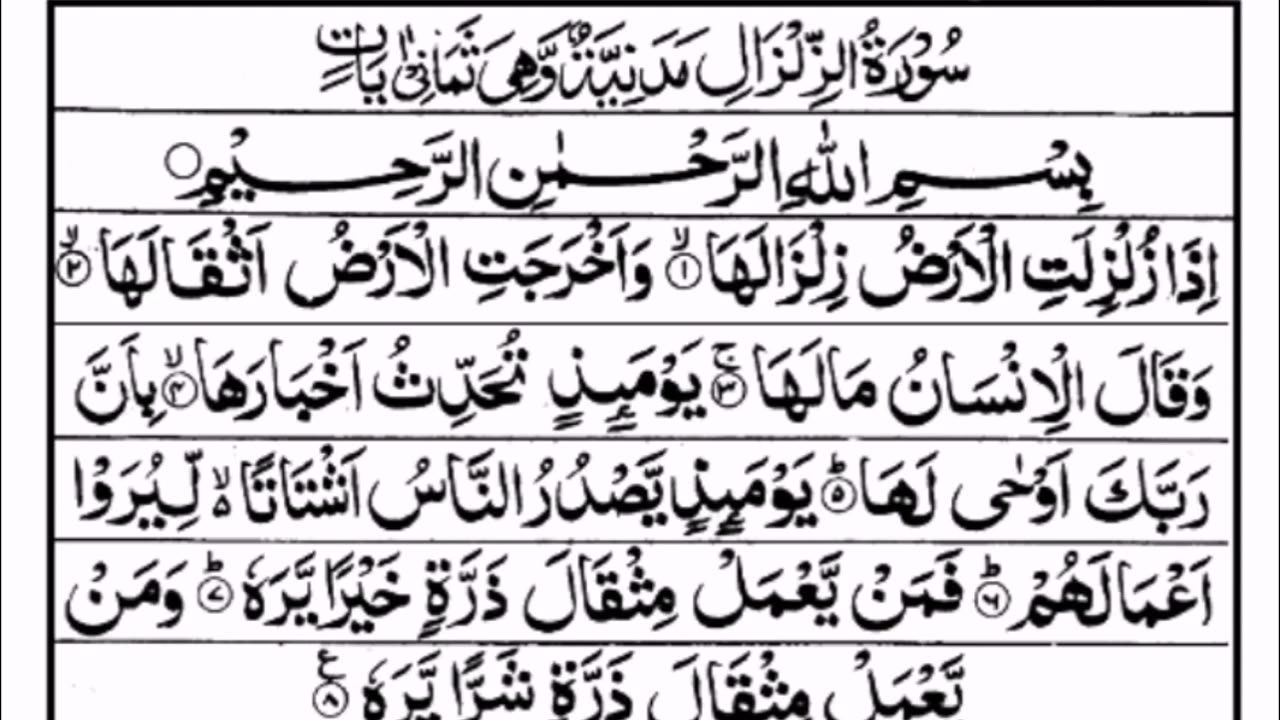 سُوْرَةُ الزِّلْزَالِ مَدَنِيَّةٌ وَّهِيَ ثَمَانِیْ اٰيَاتٍ
بِسْمِ اللّٰهِ الرَّحْمٰنِ الرَّحِيْمِ ○
اِذَا زُلْزِلَتِ الْاَرْضُ زِلْزَالَهَا ۙ﴿۱﴾ وَاَخْرَجَتِ الْاَرْضُ اَثْقَالَهَا ۙ﴿۲﴾
وَقَالَ الْاِنْسَانُ مَالَهَا ۚ﴿۳﴾ يَوْمَئِذٍ تُحَدِّثُ اَخْبَارَهَا ۙ﴿۴﴾ بِاَنَّ
رَبَّكَ اَوْحٰى لَهَا ؕ﴿۵﴾ يَوْمَئِذٍ يَّصْدُرُ النَّاسُ اَشْتَاتًا ۙ۬ لِّيُرَوْا
اَعْمَالَهُمْ ؕ﴿۶﴾ فَمَنْ يَّعْمَلْ مِثْقَالَ ذَرَّةٍ خَيْرًا يَّرَهٗ ؕ﴿۷﴾ وَمَنْ
يَّعْمَلْ مِثْقَالَ ذَرَّةٍ شَرًّا يَّرَهٗ ﴿۸﴾ ع